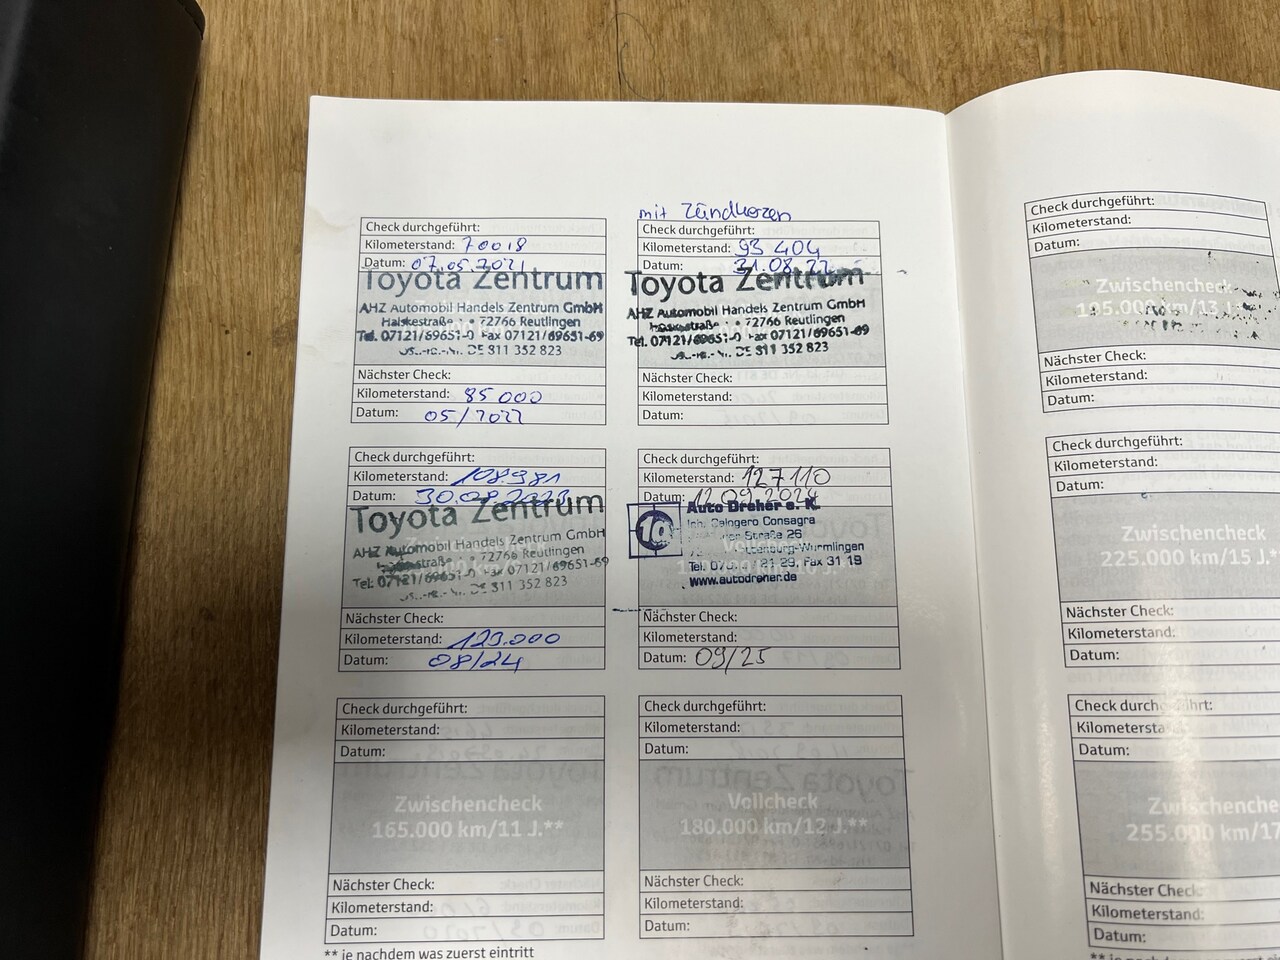 Check durchgeführt:
Kilometerstand: 70018
Datum: 07.05.2021
Toyota Zentrum
AHZ Automobil Handels Zentrum GmbH
72766 Reutlingen
Tel. 07121/69651-0 Fax 07121/69651-69
DE 811 352 823
Nächster Check:
Kilometerstand: 85 000
Datum: 05/2022
mit Zündkerzen
Check durchgeführt:
Kilometerstand: 93 404
Datum: 31.08.22
Toyota Zentrum
AHZ Automobil Handels Zentrum GmbH
72766 Reutlingen
Tel. 07121/69651-0 Fax 07121/69651-69
DE 811 352 823
Nächster Check:
Kilometerstand:
Datum:
Check durchgeführt:
Kilometerstand: 108981
Datum: 30.08.2023
Toyota Zentrum
AHZ Automobil Handels Zentrum GmbH
72766 Reutlingen
Tel. 07121/69651-0 Fax 07121/69651-69
DE 811 352 823
Nächster Check:
Kilometerstand: 123.000
Datum: 08/24
Check durchgeführt:
Kilometerstand: 127110
Datum: 12.09.2024
Auto Dreher e. K.
Inh. Calogero Consagra
Straße 26
Vollcheck
Tel. 21 29, Fax 31 19
www.autodreher.de
Nächster Check:
Kilometerstand:
Datum: 09/25
Check durchgeführt:
Kilometerstand:
Datum:
Zwischencheck
165.000 km/11 J.**
Nächster Check:
Kilometerstand:
Datum:
** je nachdem was zuerst eintritt
Check durchgeführt:
Kilometerstand:
Datum:
Vollcheck
180.000 km/12 J.**
Nächster Check:
Kilometerstand:
Datum:
Check durchgeführt:
Kilometerstand:
Datum:
Zwischencheck
195.000 km/13 J.
Nächster Check:
Kilometerstand:
Datum:
Check durchgeführt:
Kilometerstand:
Datum:
Zwischencheck
225.000 km/15 J.*
Nächster Check:
Kilometerstand:
Datum:
Check durchgeführt:
Kilometersta
Datum:
Zwischenche
255.000 km/17
Nächster Check
Kilometerstand:
Datum: